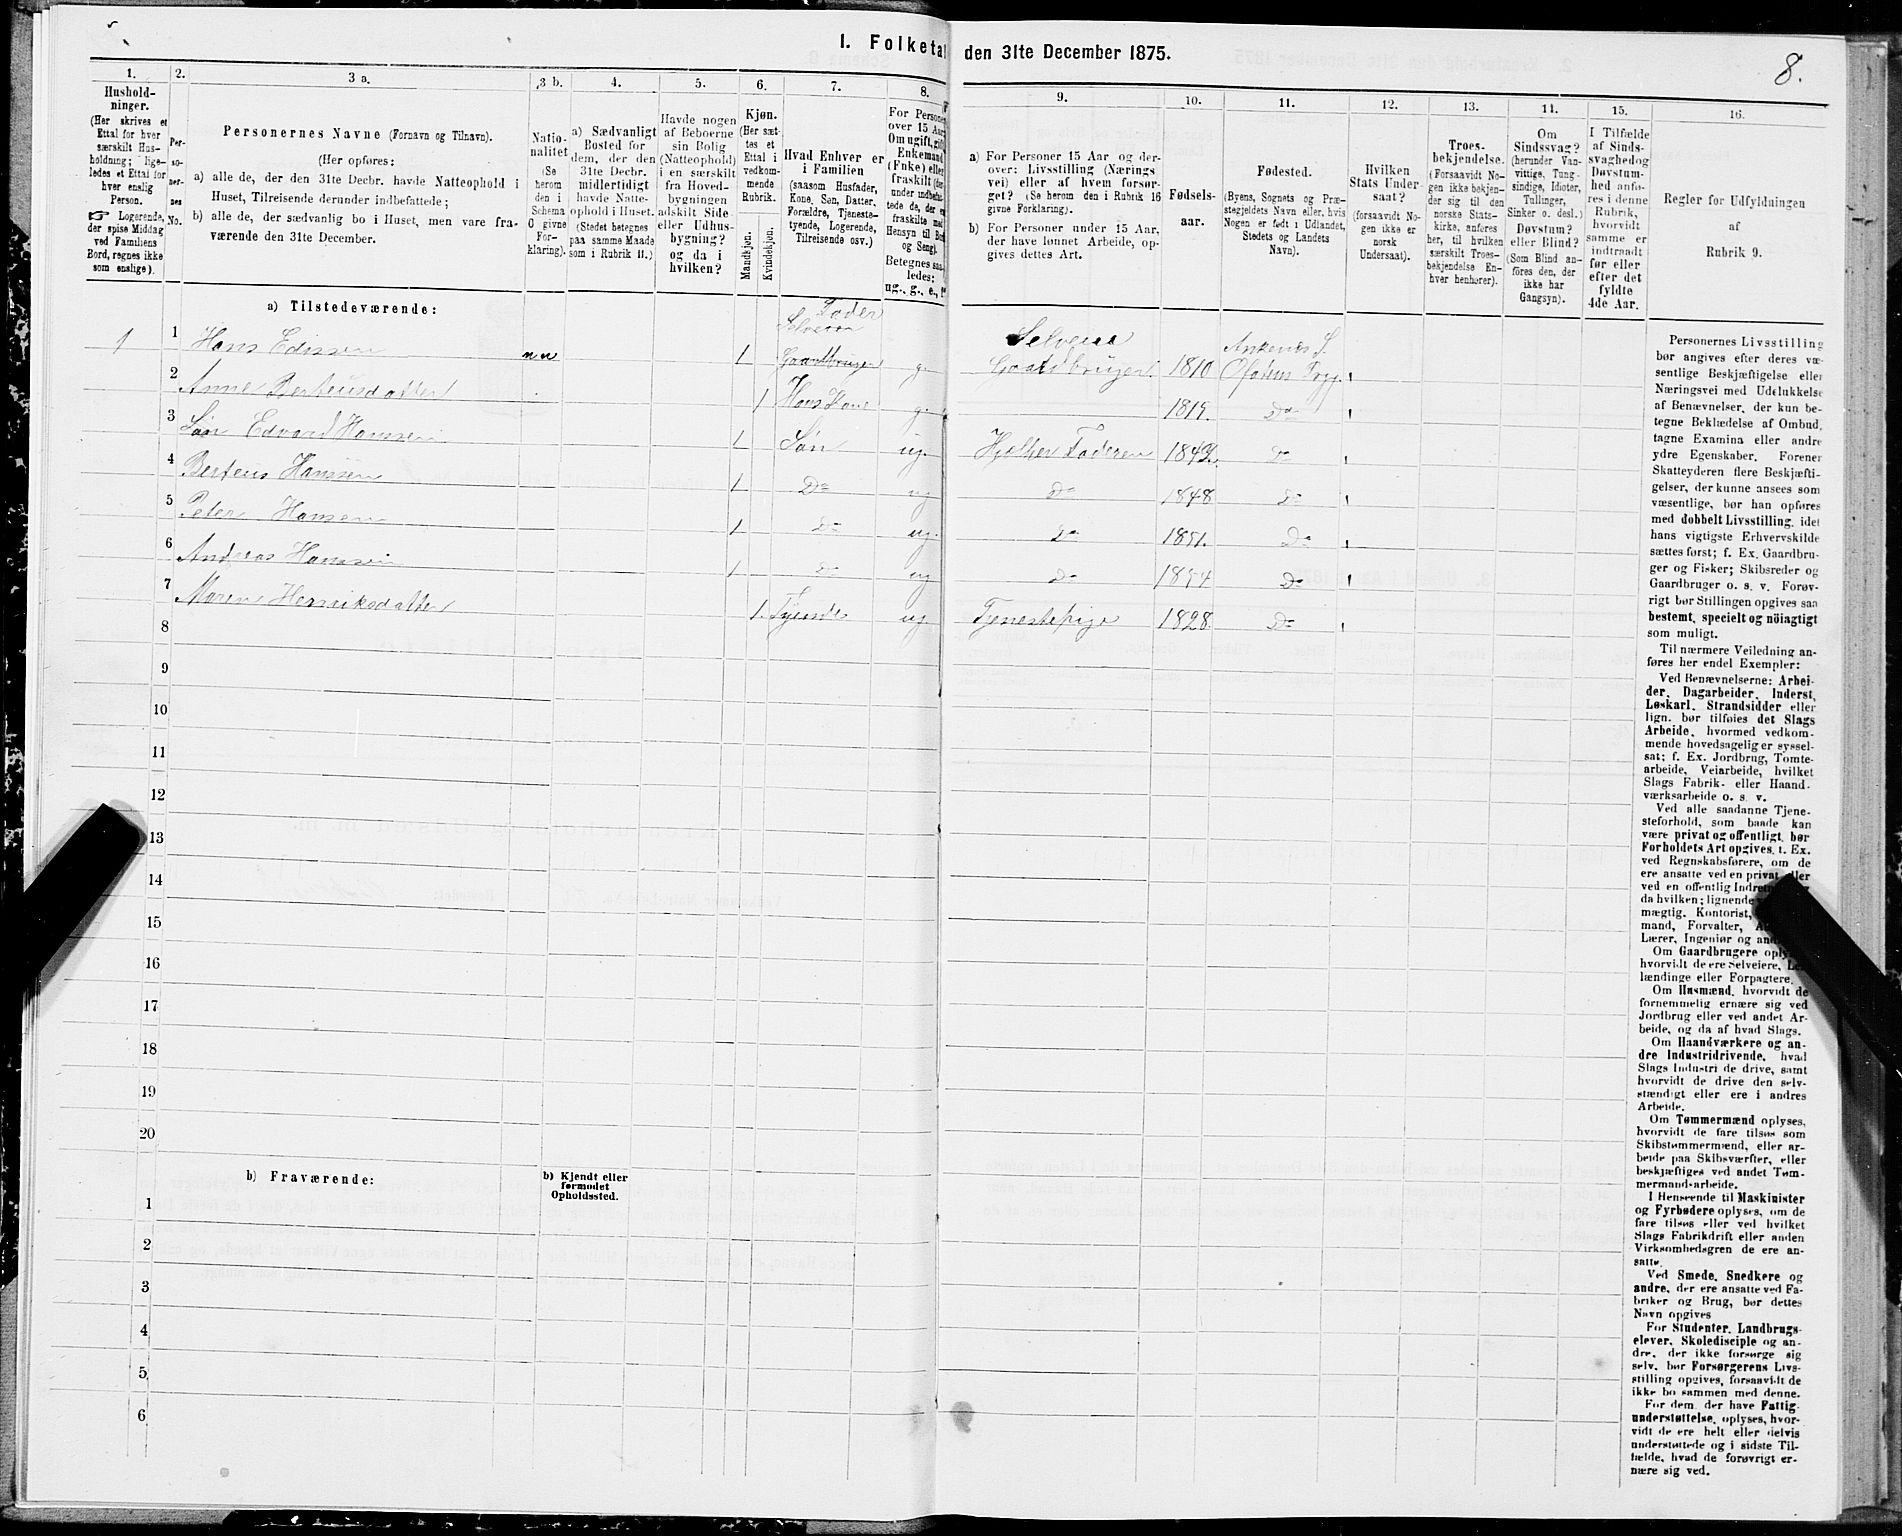 8.
I. Folketal den 31te December 1875.
1. 2. 3 a. 3 b. 4. 5. 6. 7. 8. 9. 10. 11. 12. 13. 14. 15. 16.
Hushold-
ninger.
(Her skrives et
Ettal for hver
særskilt Hus-
holdning; lige-
ledes et Ettal for
hver enslig
Person.
☞ Logerende,
der spise Middag
ved Familiens
Bord, regnes ikke
som enslige).
Per-
so-
ner-
nes
No.
Personernes Navne (Fornavn og Tilnavn).
(Her opføres:
a) alle de, der den 31te Decbr. havde Natteophold i
Huset, Tilreisende derunder indbefattede;
b) alle de, der sædvanlig bo i Huset, men vare fra-
værende den 31te December.
Natio-
nalitet
(Se
herom
den i
Schema
0 givne
For-
klaring).
a) Sædvanligt
Bosted for
dem, der den
31te Decbr.
midlertidigt
havde Natte-
ophold i Huset.
(Stedet betegnes
paa samme Maade
som i Rubrik 11.)
Havde nogen
af Beboerne
sin Bolig
(Natteophold)
i en særskilt
fra Hoved-
bygningen
adskilt Side-
eller Udhus-
bygning?
og da i
hvilken?
Kjøn.
(Her sæt-
tes et
Ettal i
vedkom-
mende
Rubrik.
Mandkjøn.
Kvindekjøn.
Hvad Enhver er
i Familien
(saasom Husfader,
Kone, Søn, Datter,
Forældre, Tjeneste-
tyende, Logerende,
Tilreisende osv.)
For Persone
over 15 Aar
Om ugift, gift
Enkemand
(Enke) eller
fraskilt
under indbefat-
tede de, der er
fraskilte med
Hensyn til Bord
og Seng).
Betegnes saa-
ledes:
ug., g., e., f.
a) For Personer 15 Aar og der-
over: Livsstilling (Nærings
vei) eller af hvem forsør-
get? (Se herom den i Rubrik 16
givne Forklaring).
b) For Personer under 15 Aar,
der have lønnet Arbeide, op-
gives dettes Art.
Fødsels-
aar.
Fødested.
(Byens, Sognets og Præ-
stegjeldets Navn eller, hvis
Nogen er født i Udlandet,
Stedets og Landets
Navn).
Hvilken
Stats Under-
saat?
(forsaavidt No-
gen ikke er
norsk
Undersaat).
Troes-
bekjendelse.
(Forsaavidt No-
gen ikke bekjen-
der sig til den
norske Stats-
kirke, anføres
her, til hvilken
særskilt Troes-
bekjendelse En-
hver henhører).
Om
Sindssvag?
(herunder Van-
vittige, Tung-
sindige, Idioter,
Tullinger,
Sinker o. desl.)
Døvstum?
eller Blind?
(Som Blind an-
føres den, der
ikke har
Gangsyn).
I Tilfælde
af Sinds-
svaghed og
Døvstum-
hed anfø-
res i denne
Rubrik,
hvorvidt
samme er
indtraadt
før eller
efter det
fyldte
4de Aar.
Regler for Udfyldningen
af
Rubrik 9.
a) Tilstedeværende:
1 1 Hans Edissen nn 1 Fader Selveier Gaardbruger g. Selveier Gaardbruger. 1810 Ankenes S. Ofotens Præg.
2 Anne Berteusdatter 1 Hans Kone g. 1819. Do
3 Søn Edvard Hanssen 1 Søn ug. Hjelper Faderen 1842. Do
4 Berteus Hanssen 1 Do ug Do 1848 Do
5 Peter Hansen 1 Do ug. Do 1851. Do
6 Andreas Hanssen 1 Do ug Do 1854 Do
7 Maren Henriksdatter 1. Tyende ug. Tjenestepige 1828. Do
8
9
10
11
12
13
14
15
16
17
18
19
20
b) Fraværende:
b) Kjendt eller
formodet
Opholdssted.
1
2
3
4
5
6
Personernes Livsstilling
bør angives efter deres væ-
sentlige Beskjæftigelse eller
Næringsvei med Udelukkelse
af Benævnelser, der kun be-
tegne Beklædelse af Ombud,
tagne Examina eller andre
ydre Egenskaber. Forener
Skatteyderen flere Beskjæfti-
gelser, der kunne ansees som
væsentlige, bør han opføres
med dobbelt Livsstilling, idet
hans vigtigste Erhvervskilde
sættes først; f. Ex. Gaardbru-
ger og Fisker; Skibsreder og
Gaardbruger o. s. v. Forøv-
rigt bør Stillingen opgives saa
bestemt, specielt og nöiagtigt
som muligt.
Til nærmere Veiledning an-
føres her endel Exempler:
Ved Benævnelserne: Arbei-
der, Dagarbeider, Inderst,
Løskarl, Strandsidder eller
lign. bør tilføies det Slags
Arbeide, hvormed vedkom-
mende hovedsagelig er syssel-
sat; f. Ex. Jordbrug, Tomte-
arbeide, Veiarbeide, hvilket
Slags Fabrik- eller Haand-
værksarbeide o. s. v.
Ved alle saadanne Tjene-
steforhold, som baade kan
være privat og offentligt, bør
Forholdets Art opgives, t. Ex.
ved Regnskabsførere, om de
ere ansatte ved en privat eller
ved en offentlig
da hvilken; lignende
mægtig, Kontorist,
mand, Forvalter,
Lærer, Ingeniør og
Om Gaardbrugere
hvorvidt de ere Selveiere,
lændinge eller Forpagtere.
Om Husmænd, hvorvidt de
fornemmelig ernære sig ved
Jordbrug eller ved andet Ar-
beide, og da af hvad Slags.
Om Haandværkere og an-
dre Industridrivende, hvad
Slags Industri de drive, samt
hvorvidt de drive den selv-
stændigt eller ere i andres
Arbeide.
Om Tømmermænd oplyses,
hvorvidt de fare tilsøs som
Skibstømmermænd, eller ar-
beide paa Skibsværfter, eller
beskjæftiges ved andet Tøm-
mermandsarbeide.
I Henseende til Maskinister
og Fyrbødere oplyses, om de
fare tilsøs eller ved hvilket
Slags Fabrikdrift eller anden
Virksomhedsgren de ere an-
satte.
Ved Smede, Snedkere og
andre, der ere ansatte ved Fa-
briker og Brug, bør dettes
Navn opgives
For Studenter, Landbrugs-
elever, Skoledisciple og an-
dre, der ikke forsørge sig
selv, bør Forsørgerens Livs-
stilling opgives, forsaavidt de
ikke bo sammen med denne.
For dem, der have Fattig-
understøttelse, oplyses, hvor-
vidt de ere helt eller delvis
understøttede og i sidste Til-
fælde, hvad de forøvrigt er-
nære sig ved.